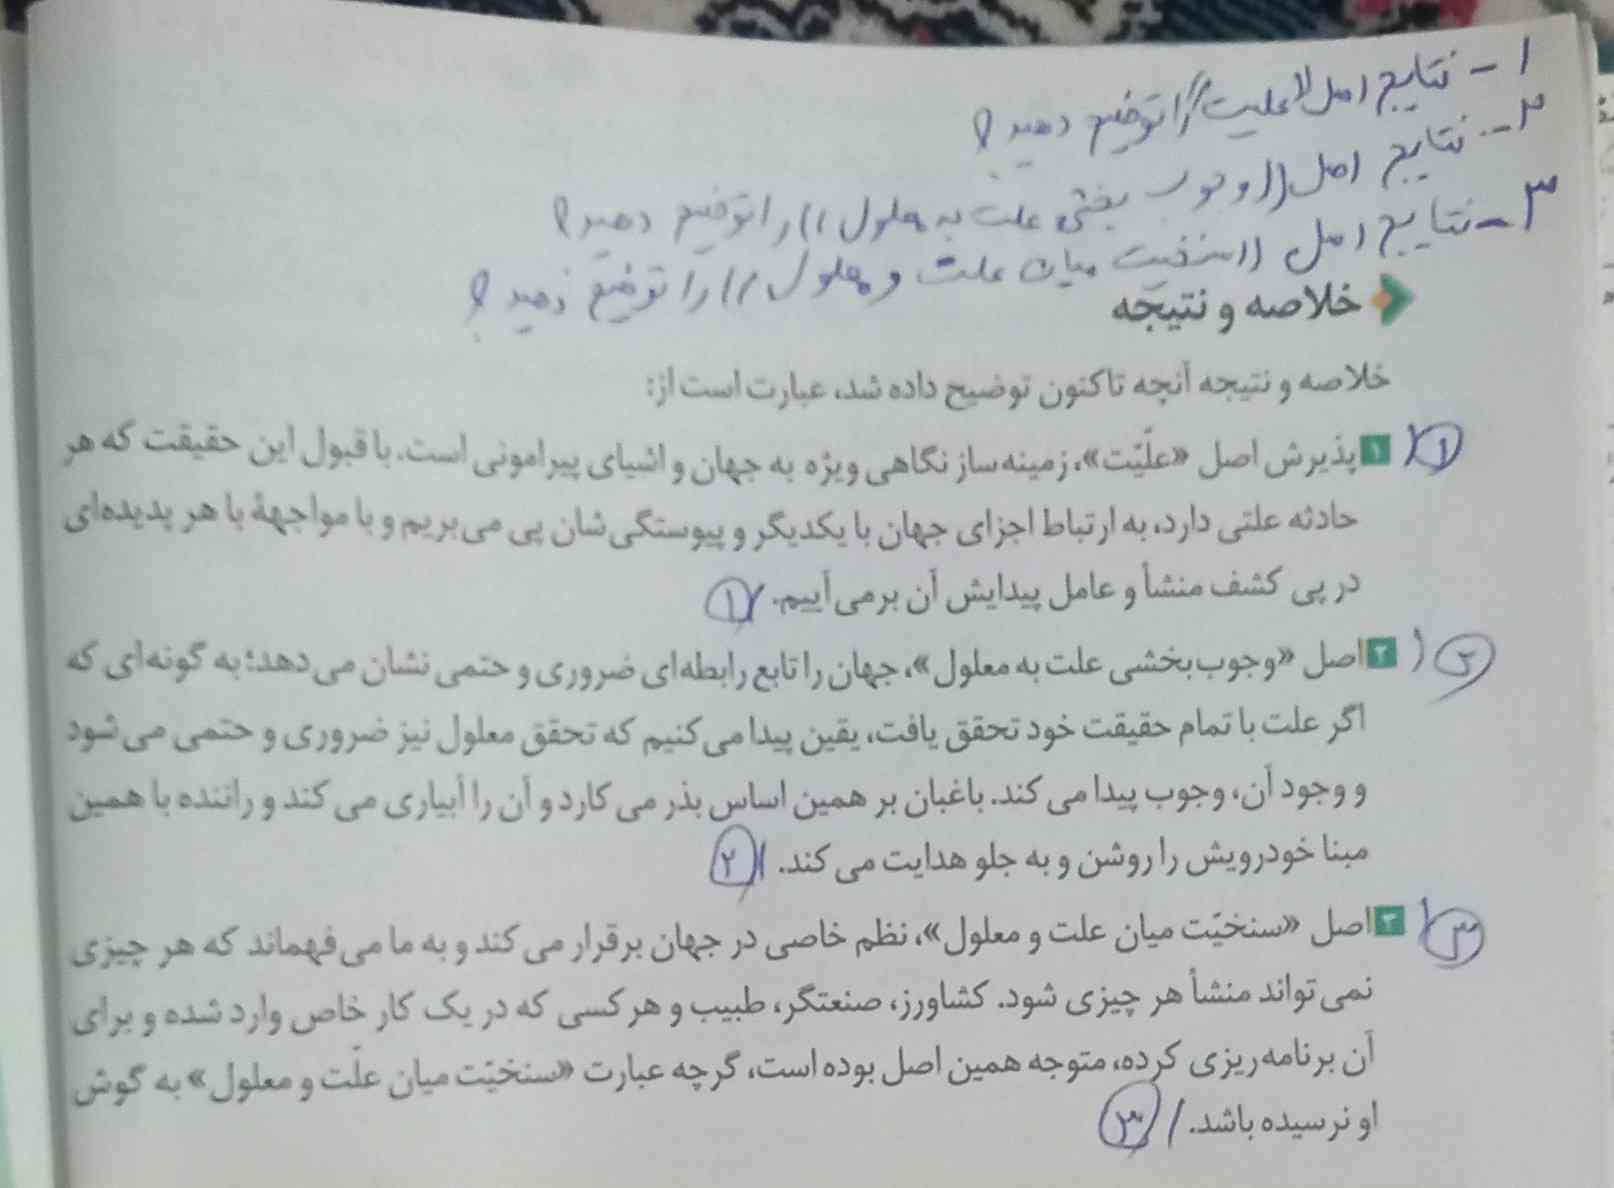 ۱- نتایج اصل «علیت» را توضیح دهید؟
۲- نتایج اصل «وجوب بخشی علت به معلول» را توضیح دهید؟
۳- نتایج اصل «سنخیت میان علت و معلول» را توضیح دهید؟
خلاصه و نتیجه
خلاصه و نتیجه آنچه تاکنون توضیح داده شد، عبارت است از:
۱) ۱ پذیرش اصل «علیّت»، زمینه‌ساز نگاهی ویژه به جهان و اشیای پیرامونی است. با قبول این حقیقت که هر
حادثه علتی دارد، به ارتباط اجزای جهان با یکدیگر و پیوستگی‌شان پی می‌بریم و با مواجههٔ با هر پدیده‌ای
در پی کشف منشأ و عامل پیدایش آن برمی‌آییم. / ۱
۲) ۲ اصل «وجوب‌بخشی علت به معلول»، جهان را تابع رابطه‌ای ضروری و حتمی نشان می‌دهد؛ به گونه‌ای که
اگر علت با تمام حقیقت خود تحقق یافت، یقین پیدا می‌کنیم که تحقق معلول نیز ضروری و حتمی می‌شود
و وجود آن، وجوب پیدا می کند. باغبان بر همین اساس بذر می کارد و آن را آبیاری می کند و راننده با همین
مبنا خودرویش را روشن و به جلو هدایت می کند. / ۲
۳) ۳ اصل «سنخیّت میان علت و معلول»، نظم خاصی در جهان برقرار می کند و به ما می‌فهماند که هر چیزی
نمی تواند منشأ هر چیزی شود. کشاورز، صنعتگر، طبیب و هر کسی که در یک کار خاص وارد شده و برای
آن برنامه‌ریزی کرده، متوجه همین اصل بوده است، گرچه عبارت «سنخیّت میان علّت و معلول» به گوش
او نرسیده باشد. / ۳